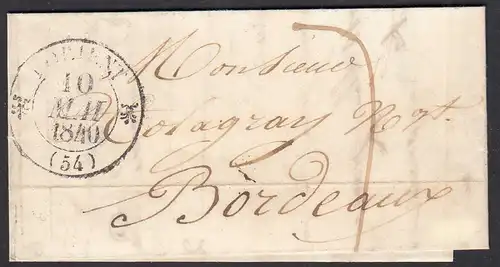 LORIENT
10
MAI
1840
(54)
Monsieur
Nt.
Bordeaux
7